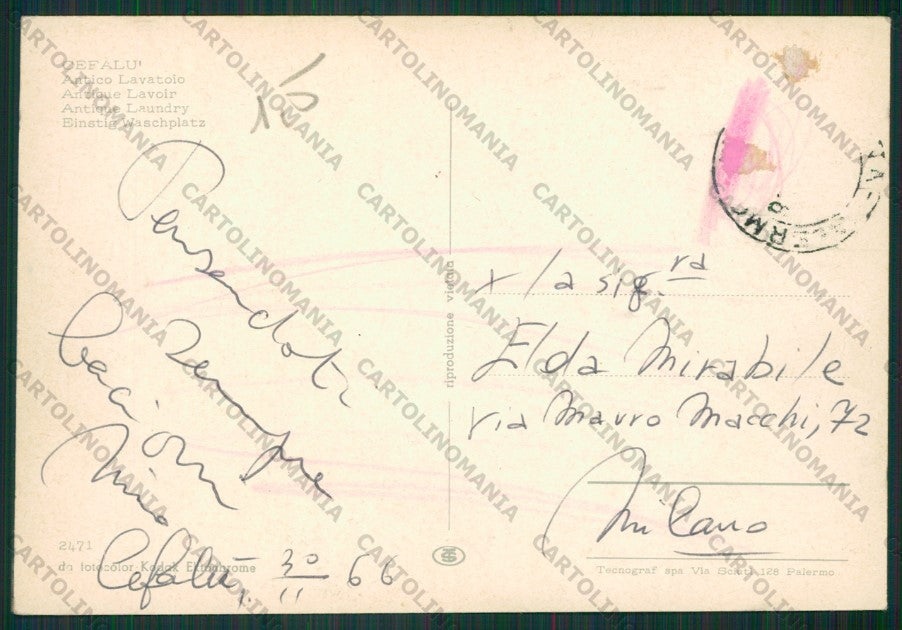 CEFALU'
Antico Lavatoio
Antique Lavoir
Antique Laundry
Einstig Waschplatz
Pensandoti
sempre
bacioni
Nino
Cefalù, 30/11 66
2471
da fotocolor Kodak Ektachrome
riproduzione vietata
x la sig.ra
Elda Mirabile
via Mauro Macchi, 72
Milano
Tecnograf spa Via Sciuti 128 Palermo
CARTOLINOMANIA